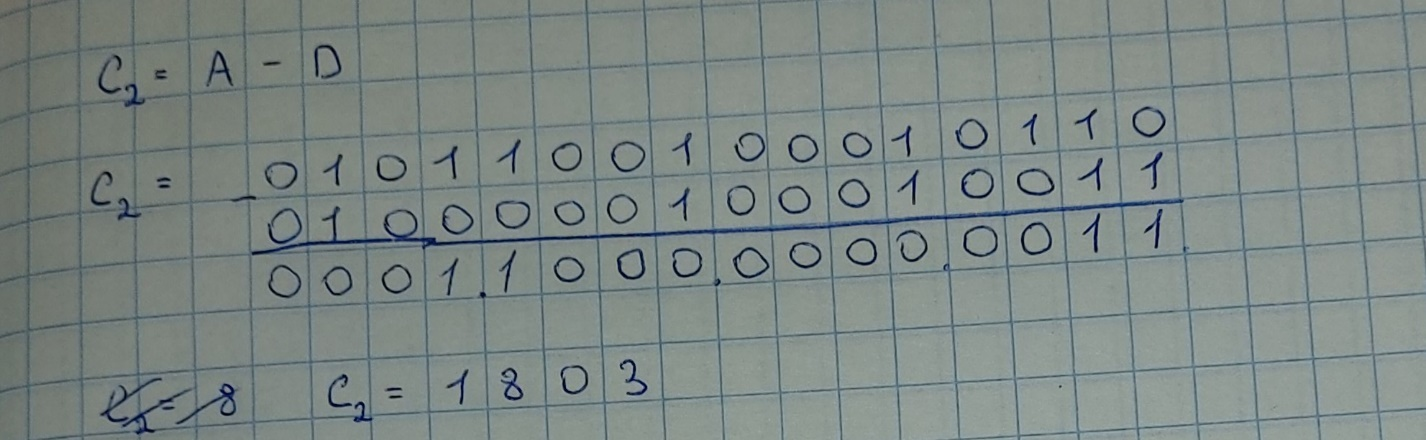 C₂ = A - D
C₂ = - 0 1 0 1 1 0 0 1 0 0 0 1 0 1 1 0
0 1 0 0 0 0 0 1 0 0 0 1 0 0 1 1
0 0 0 1 . 1 0 0 0 . 0 0 0 0 . 0 0 1 1
C₂ = 8 C₂ = 1 8 0 3